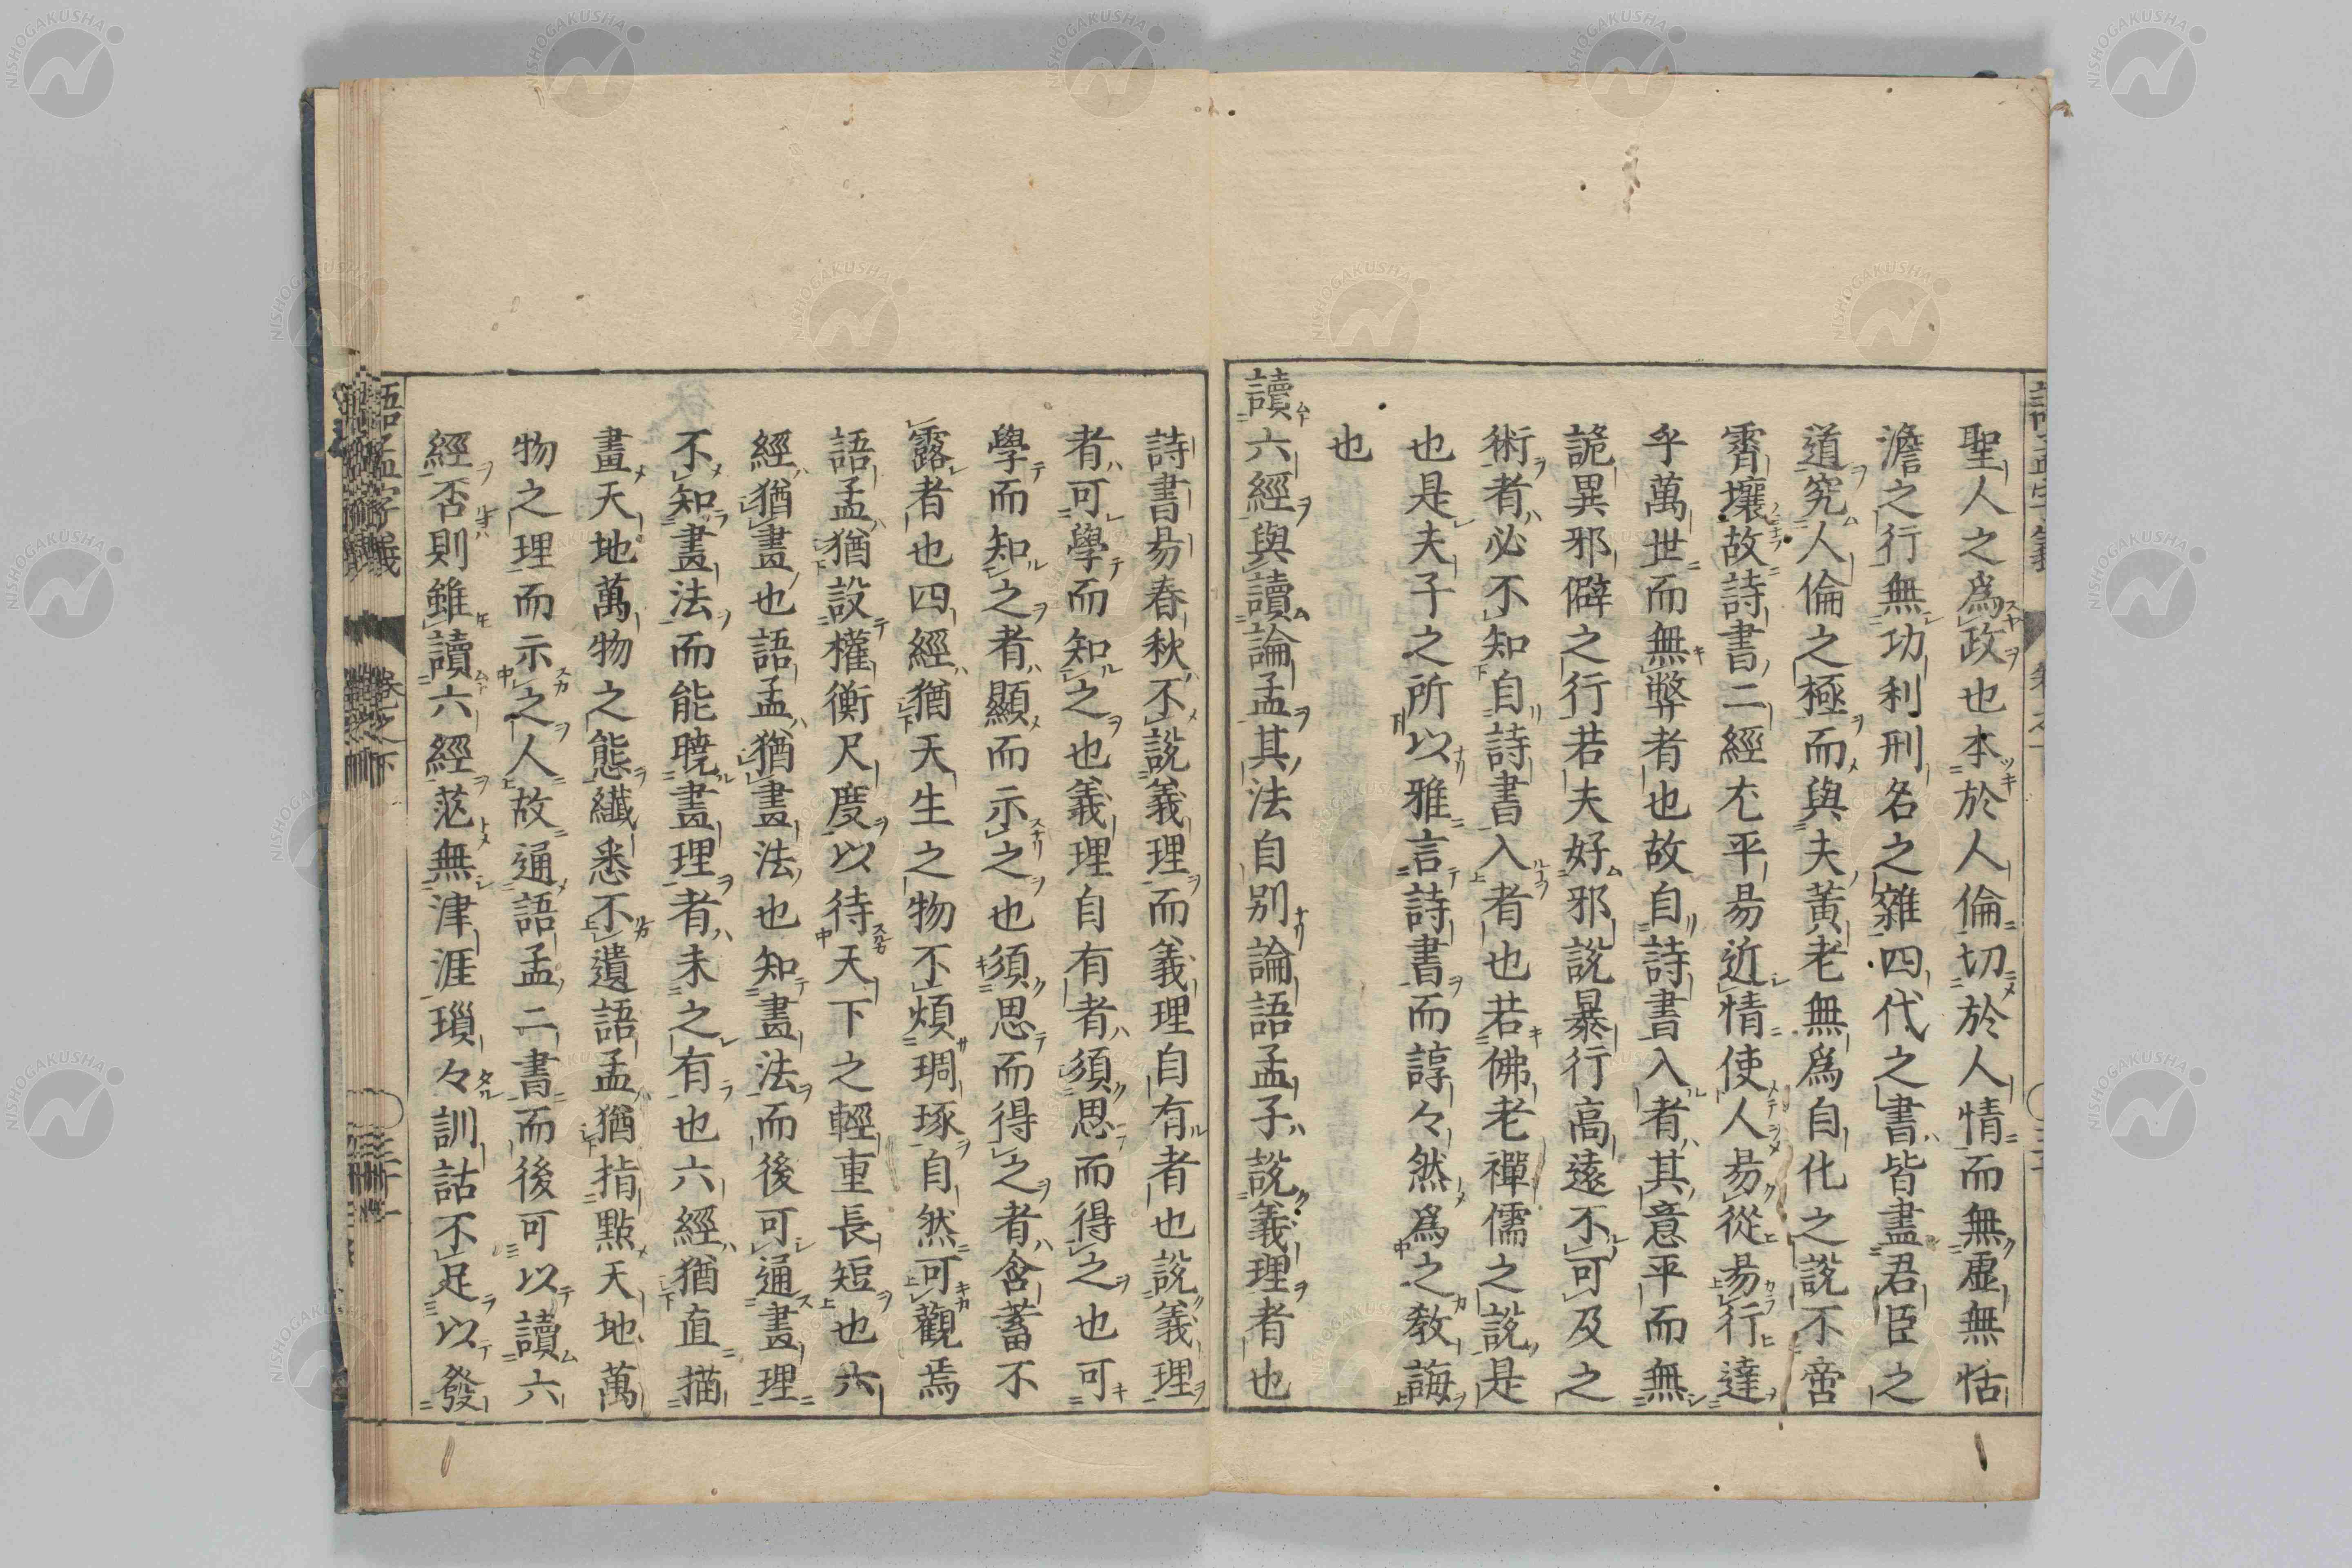 聖人之爲政也本於人倫切於人情而無虛無恬
澹之行無功利刑名之雜四代之書皆盡君臣之
道究人倫之極而與夫黃老無爲自化之說不啻
霄壤故詩書二經尤平易近情使人易從易行達
乎萬世而無弊者也故自詩書入者其意平而無
詭異邪僻之行若夫好邪說暴行高遠不可及之
術者必不知自詩書入者也若佛老禪儒之說是
也是夫子之所以雅言詩書而諄々然爲之敎誨
也
讀六經與讀論孟其法自別論語孟子說義理者也
詩書易春秋不說義理而義理自有者也說義理
者可學而知之也義理自有者須思而得之也可
學而知之者顯而示之也須思而得之者含蓄不
露者也四經猶天生之物不煩琱琢自然可觀焉
語孟猶設權衡尺度以待天下之輕重長短也六
經猶畫也語孟猶畫法也知畫法而後可通畫理
不知畫法而能曉畫理者未之有也六經猶直描
畫天地萬物之態纖悉不遺語孟猶指點天地萬
物之理而示之人故通語孟二書而後可以讀六
經否則雖讀六經茫無津涯瑣々訓詁不足以發
語孟字義
卷之下
三十一
NISHOGAKUSHA